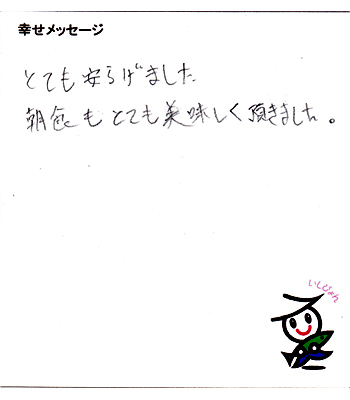 幸せメッセージ
とても安らげました
朝食もとても美味しく頂きました。
いしぴょん